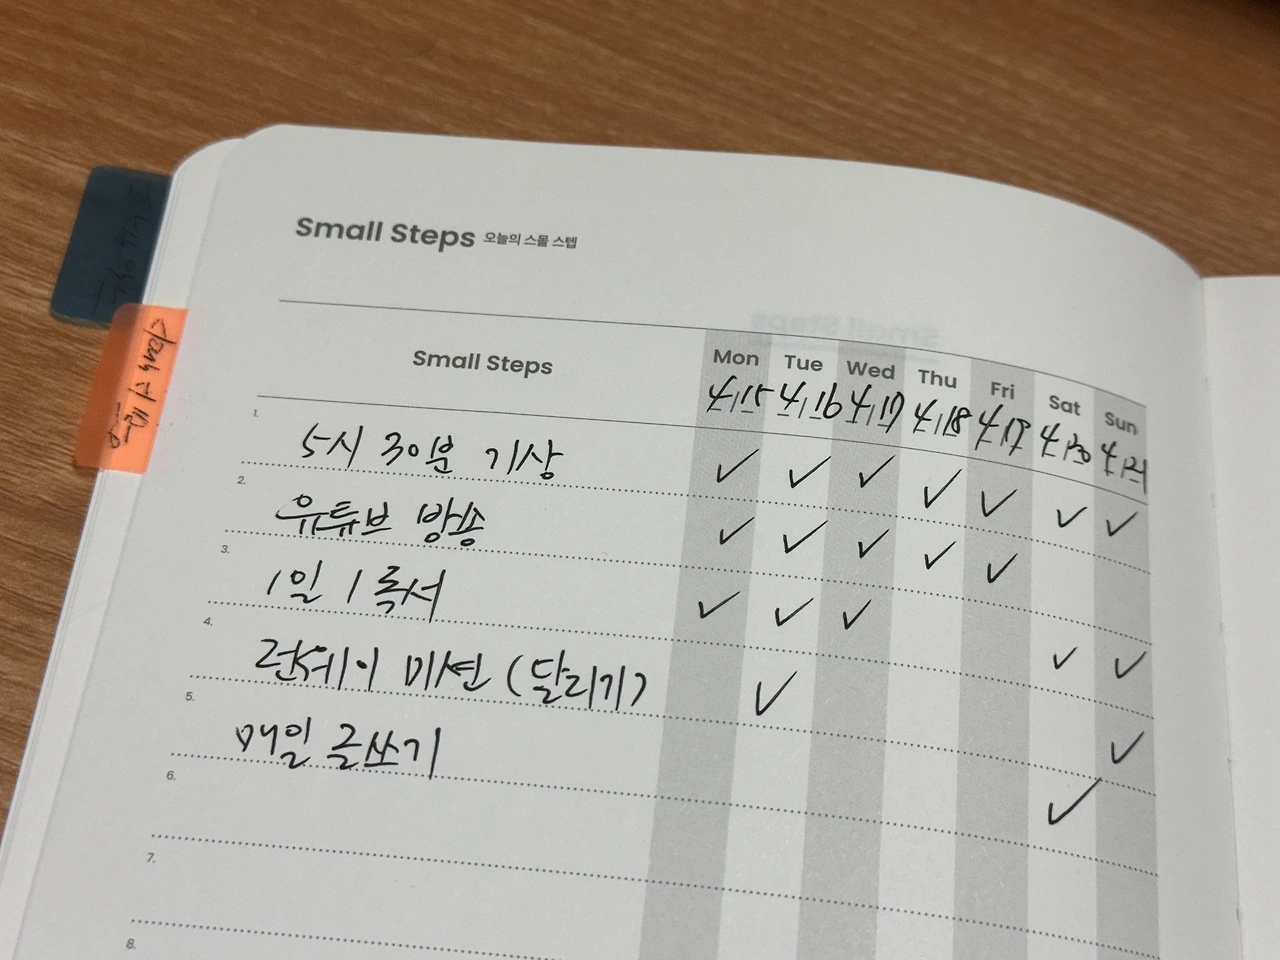 Small Steps 오늘의 스몰 스텝
Small Steps Mon Tue Wed Thu Fri Sat Sun
4/15 4/16 4/17 4/18 4/19 4/20 4/21
1. 5시 30분 기상 ✓ ✓ ✓ ✓ ✓ ✓ ✓
2. 유튜브 방송 ✓ ✓ ✓ ✓ ✓
3. 1일 1독서 ✓ ✓ ✓ ✓ ✓
4. 런데이 미션 (달리기) ✓ ✓
5. 매일 글쓰기 ✓
6.
7.
8.